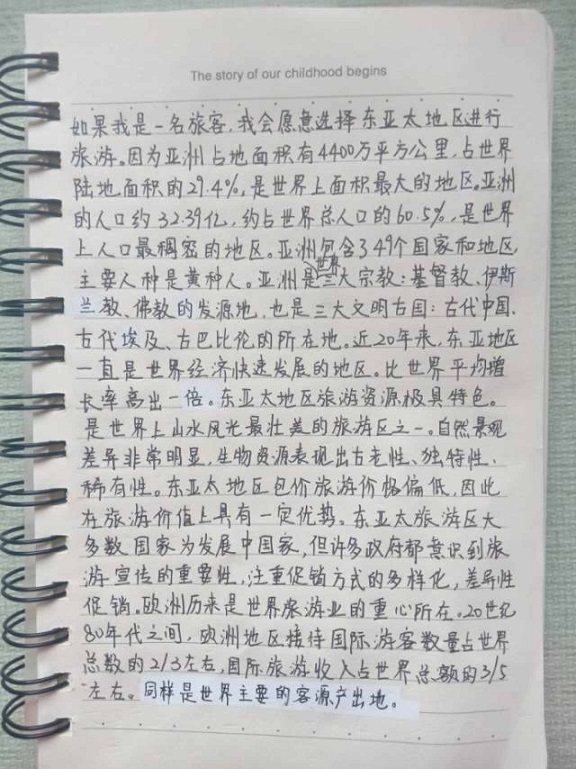 The story of our childhood begins
如果我是一名旅客,我会愿意选择东亚太地区进行
旅游。因为亚洲占地面积有4400万平方公里,占世界
陆地面积的29.4%,是世界上面积最大的地区。亚洲
的人口约32.39亿,约占世界总人口的60.5%,是世界
上人口最稠密的地区。亚洲包含了49个国家和地区,
主要人种是黄种人。亚洲是世界三大宗教:基督教、伊斯
兰教、佛教的发源地,也是三大文明古国:古代中国、
古代埃及、古巴比伦的所在地。近20年来,东亚地区
一直是世界经济快速发展的地区。比世界平均增
长率高出一倍。东亚太地区旅游资源极具特色。
是世界上山水风光最壮美的旅游区之一。自然景观
差异非常明显,生物资源表现出古老性、独特性、
稀有性。东亚太地区包价旅游价格偏低,因此
在旅游价值上具有一定优势。东亚太旅游区大
多数国家为发展中国家,但许多政府都意识到旅
游宣传的重要性,注重促销方式的多样化,差异性
促销。欧洲历来是世界旅游业的重心所在。20世纪
80年代之间,欧洲地区接待国际游客数量占世界
总数的2/3左右,国际旅游收入占世界总额的3/5
左右。同样是世界主要的客源产出地。